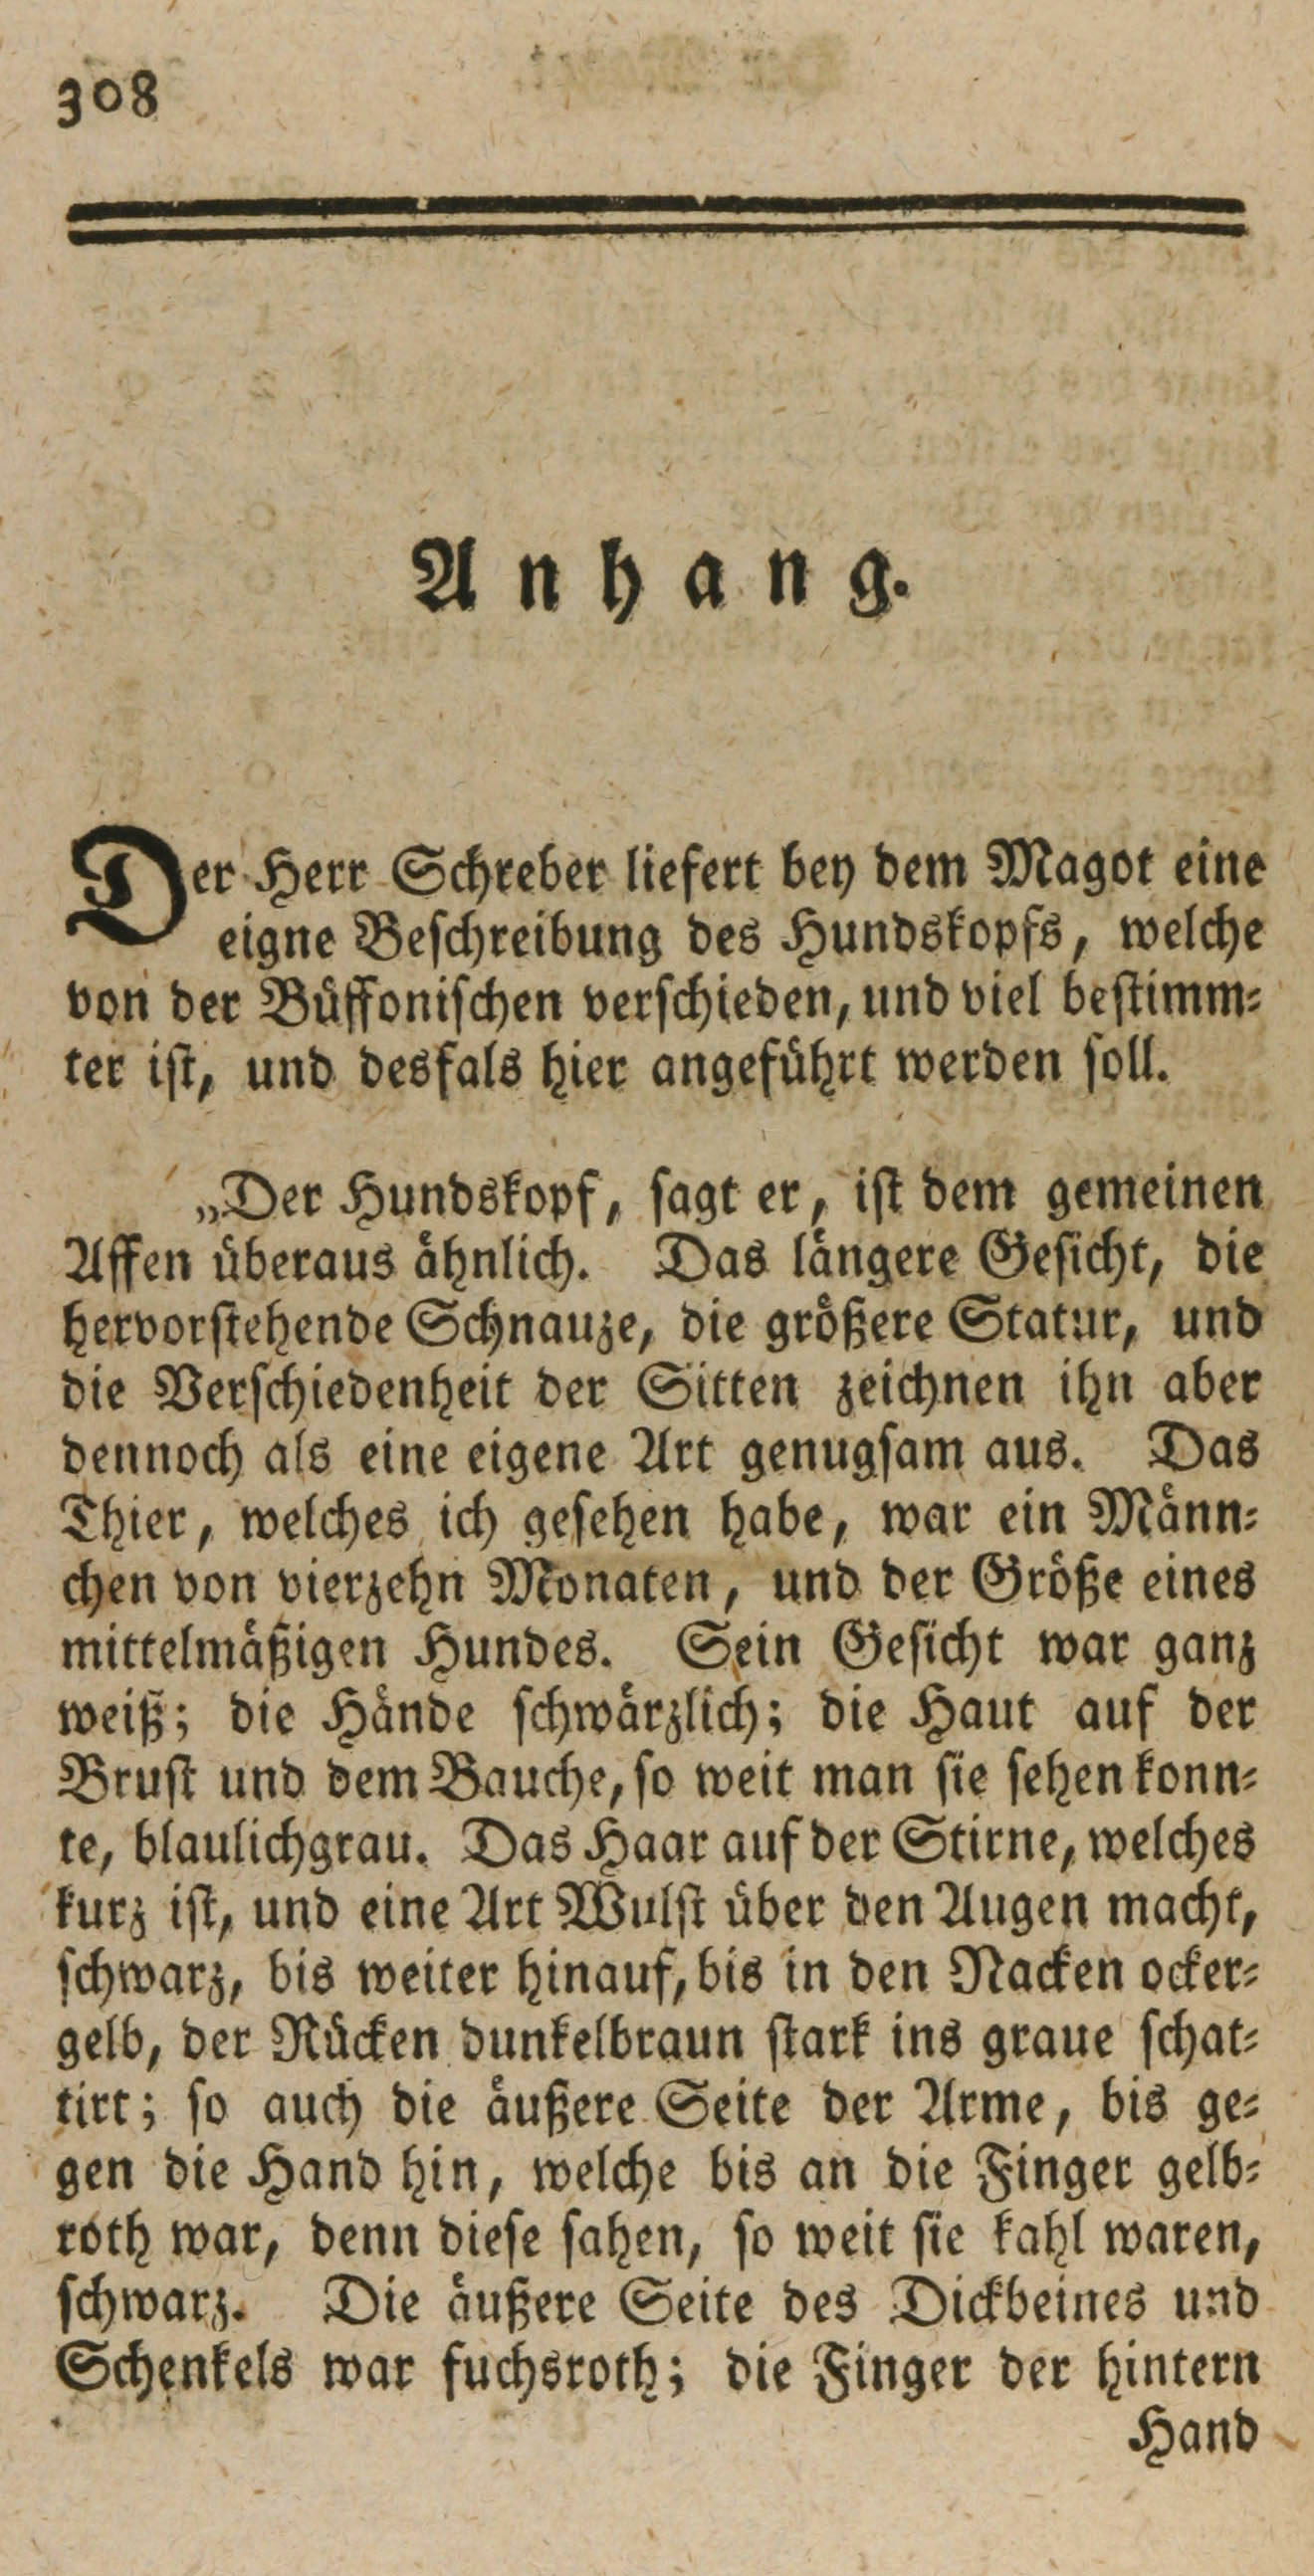 308
Anhang.
Der Herr Schreber liefert bey dem Magot eine
eigne Beschreibung des Hundskopfs, welche
von der Büffonischen verschieden, und viel bestimm-
ter ist, und desfals hier angeführt werden soll.
„Der Hundskopf, sagt er, ist dem gemeinen
Affen überaus ähnlich. Das längere Gesicht, die
hervorstehende Schnauze, die größere Statur, und
die Verschiedenheit der Sitten zeichnen ihn aber
dennoch als eine eigene Art genugsam aus. Das
Thier, welches ich gesehen habe, war ein Männ-
chen von vierzehn Monaten, und der Größe eines
mittelmäßigen Hundes. Sein Gesicht war ganz
weiß; die Hände schwärzlich; die Haut auf der
Brust und dem Bauche, so weit man sie sehen konn-
te, blaulichgrau. Das Haar auf der Stirne, welches
kurz ist, und eine Art Wulst über den Augen macht,
schwarz, bis weiter hinauf, bis in den Nacken ocker-
gelb, der Rücken dunkelbraun stark ins graue schat-
tirt; so auch die äußere Seite der Arme, bis ge-
gen die Hand hin, welche bis an die Finger gelb-
roth war, denn diese sahen, so weit sie kahl waren,
schwarz. Die äußere Seite des Dickbeines und
Schenkels war fuchsroth; die Finger der hintern
Hand